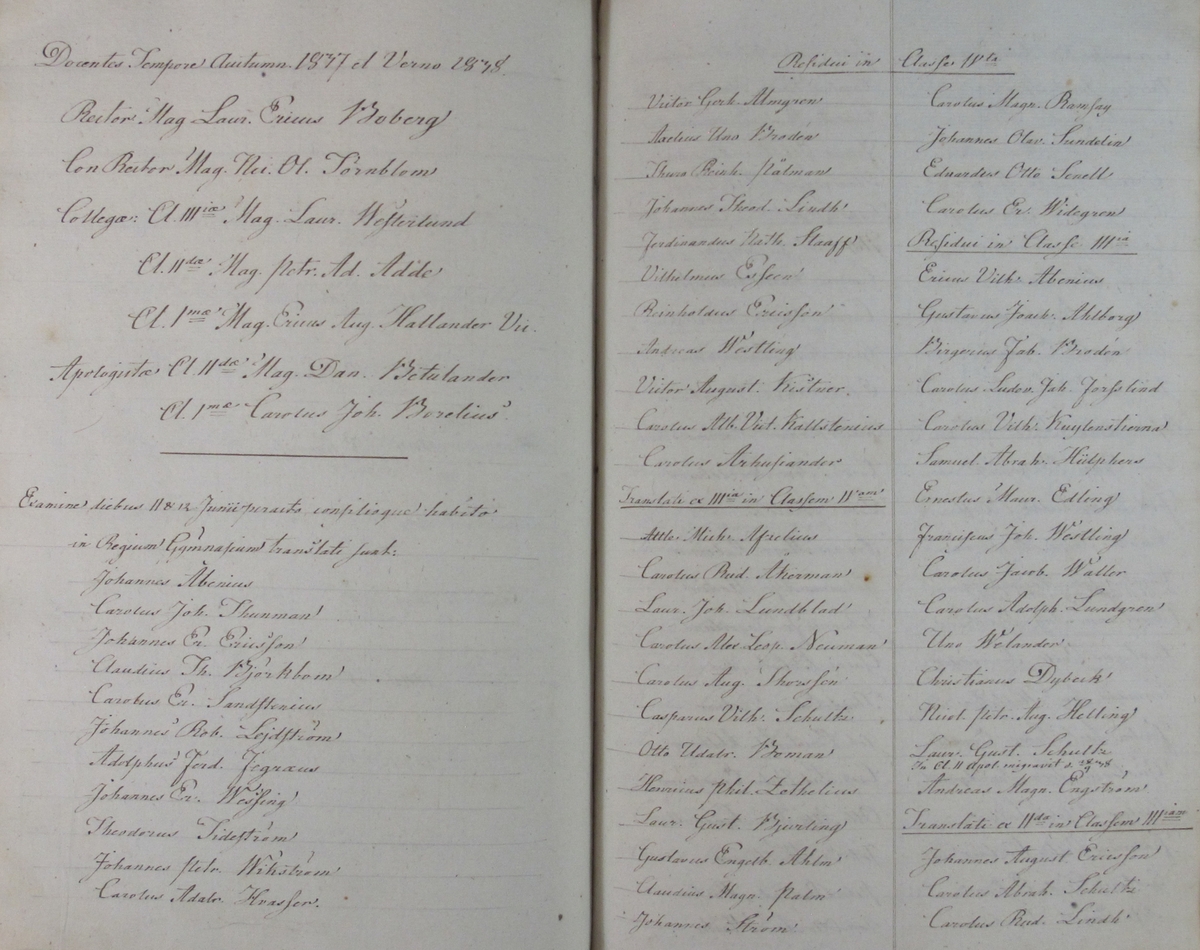 Docentes Tempore Autumn. 1837 et Verno 1838.
Rector Mag Laur. Ericus Boberg
Con Rector Mag. Nic. Ol. Törnblom
Collegæ: Cl. IIIiæ Mag. Laur. Westerlund
Cl. IIdæ Mag. Petr. Ad. Adde
Cl. Imæ Mag. Ericus Aug. Hallander Vic.
Apologistæ Cl. IIdæ Mag. Dan. Betulander
Cl. Imæ Carolus Joh. Borelius
Examine diebus 11 & 12 Junii peracto, consilioque habito
in Regium Gymnasium translati sunt:
Johannes Abenius
Carolus Joh. Thunman
Johannes Er. Ericsson
Claudius Th. Björkbom
Carolus Er. Sandstenius
Johannes Rob. Lejdström
Adolphus Ferd. Fegræus
Johannes Er. Wessing
Theodorus Tideström
Johannes Petr. Wikström
Carolus Adalr. Hvasser.
Residui in Classe IVta
Victor Gerh. Almgren
Axelius Uno Brodén
Thure Reinh. Pålman
Johannes Theod. Lindh
Ferdinandus Nath. Staaff
Vilhelmus Esseen
Reinholdus Ericsson
Andreas Westling
Victor August. Kistner.
Carolus Alb. Vict. Kallstenius
Carolus Arhusiander
Translati ex IIIia in Classem IVam
Mich. Afzelius
Carolus Rud. Åkerman
Laur. Joh. Lundblad
Carolus Alex Leop. Neuman
Carolus Aug. Thorssén
Casparus Vilh. Schultz
Otto Udalr. Boman
Henricus Phil. Zethelius
Laur. Gust. Bjurling
Gustavus Engelb. Ahlm
Claudius Magn. Palm
Johannes Ström
Carolus Magn. Ramsay
Johannes Olav. Sundelin
Eduardus Otto Senell
Carolus Er. Widegren
Residui in Classe IIIia
Ericus Vilh. Abenius
Gustavus Joach. Ahlborg
Birgerus Jab. Brodén
Carolus Ludov. Joh. Forsslind
Carolus Vilh. Kuylenstierna
Samuel Abrah. Hülphers
Ernestus Maur. Edling
Franciscus Joh. Westling
Carolus Jacob. Waller
Carolus Adolph. Lundgren
Uno Welander
Christianus Dybeck
Nicol. Petr. Aug. Helling
Laur. Gust. Schultz
In Cl. II Apol. migravit d. 38
Andreas Magn. Engström
Translati ex IIda in Classem IIIiam
Johannes August Ericsson
Carolus Abrah. Schultz
Carolus Rud. Lindh